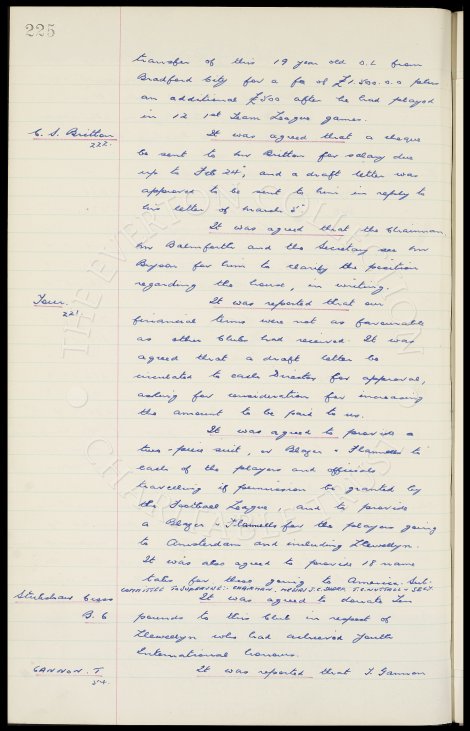 225
transfer of this 19 year old O.L from
Bradford City for a fee of £1.500.0.0 plus
an additional £500 after he had played
in 12 1st Team League games.
C. S. Britton
222.
It was agreed that a cheque
be sent to Mr Britton for salary due
up to Feb 24th, and a draft letter was
approved to be sent to him in reply to
his letter of March 5th
It was agreed that the Chairman
Mr Balmforth and the Secretary see Mr
for him to clarify the position
regarding the house, in writing.
Tour.
221
It was reported that our
financial terms were not as favourable
as other Clubs had received. It was
agreed that a draft letter be
circulated to each Director for approval,
asking for consideration for increasing
the amount to be paid to us.
It was agreed to provide a
two-piece suit, or Blazer & Flannels to
each of the players and officials
travelling if permission be granted by
the Football League, and to provide
a Blazer & Flannels for the players going
to Amsterdam and including Llewellyn.
It was also agreed to provide 18 name
tabs for those going to America. Sub-
COMMITTEE TO SUPERVISE:- CHAIRMAN, MESSRS J.C. SHARP, T.C. NUTTALL & SECY.
Cross
B. C
It was agreed to donate Ten
pounds to this Club in respect of
Llewellyn who had achieved Youth
International honours.
GANNON. T
54
It was reported that T. Gannon
THE EVERTON COLLECTION
CHARITABLE TRUST